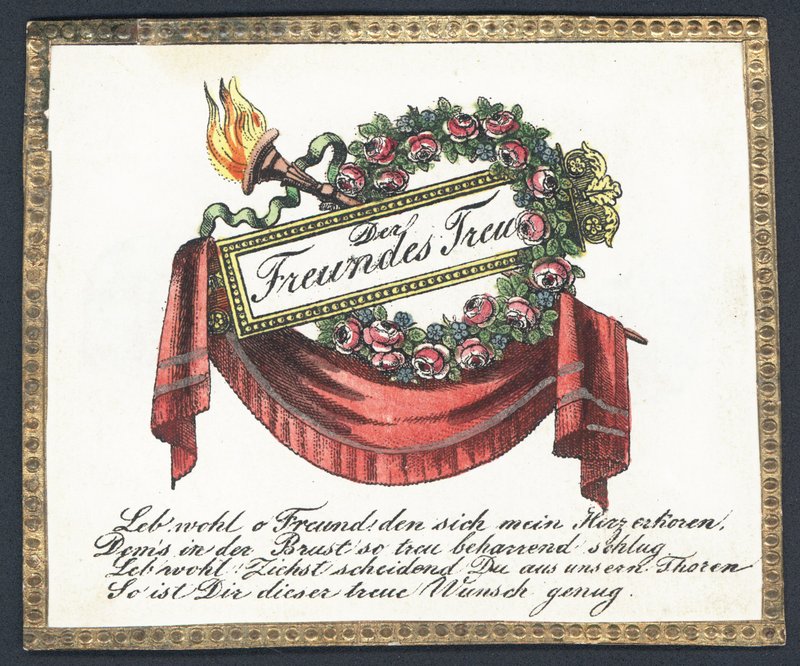 Der
Freundes Treu
Leb' wohl o Freund! den sich mein Herz erkoren,
Dem's in der Brust so treu beharrend schlug
Leb' wohl! Ziehst scheidend Du aus unsern Thoren
So ist Dir dieser treue Wunsch genug.